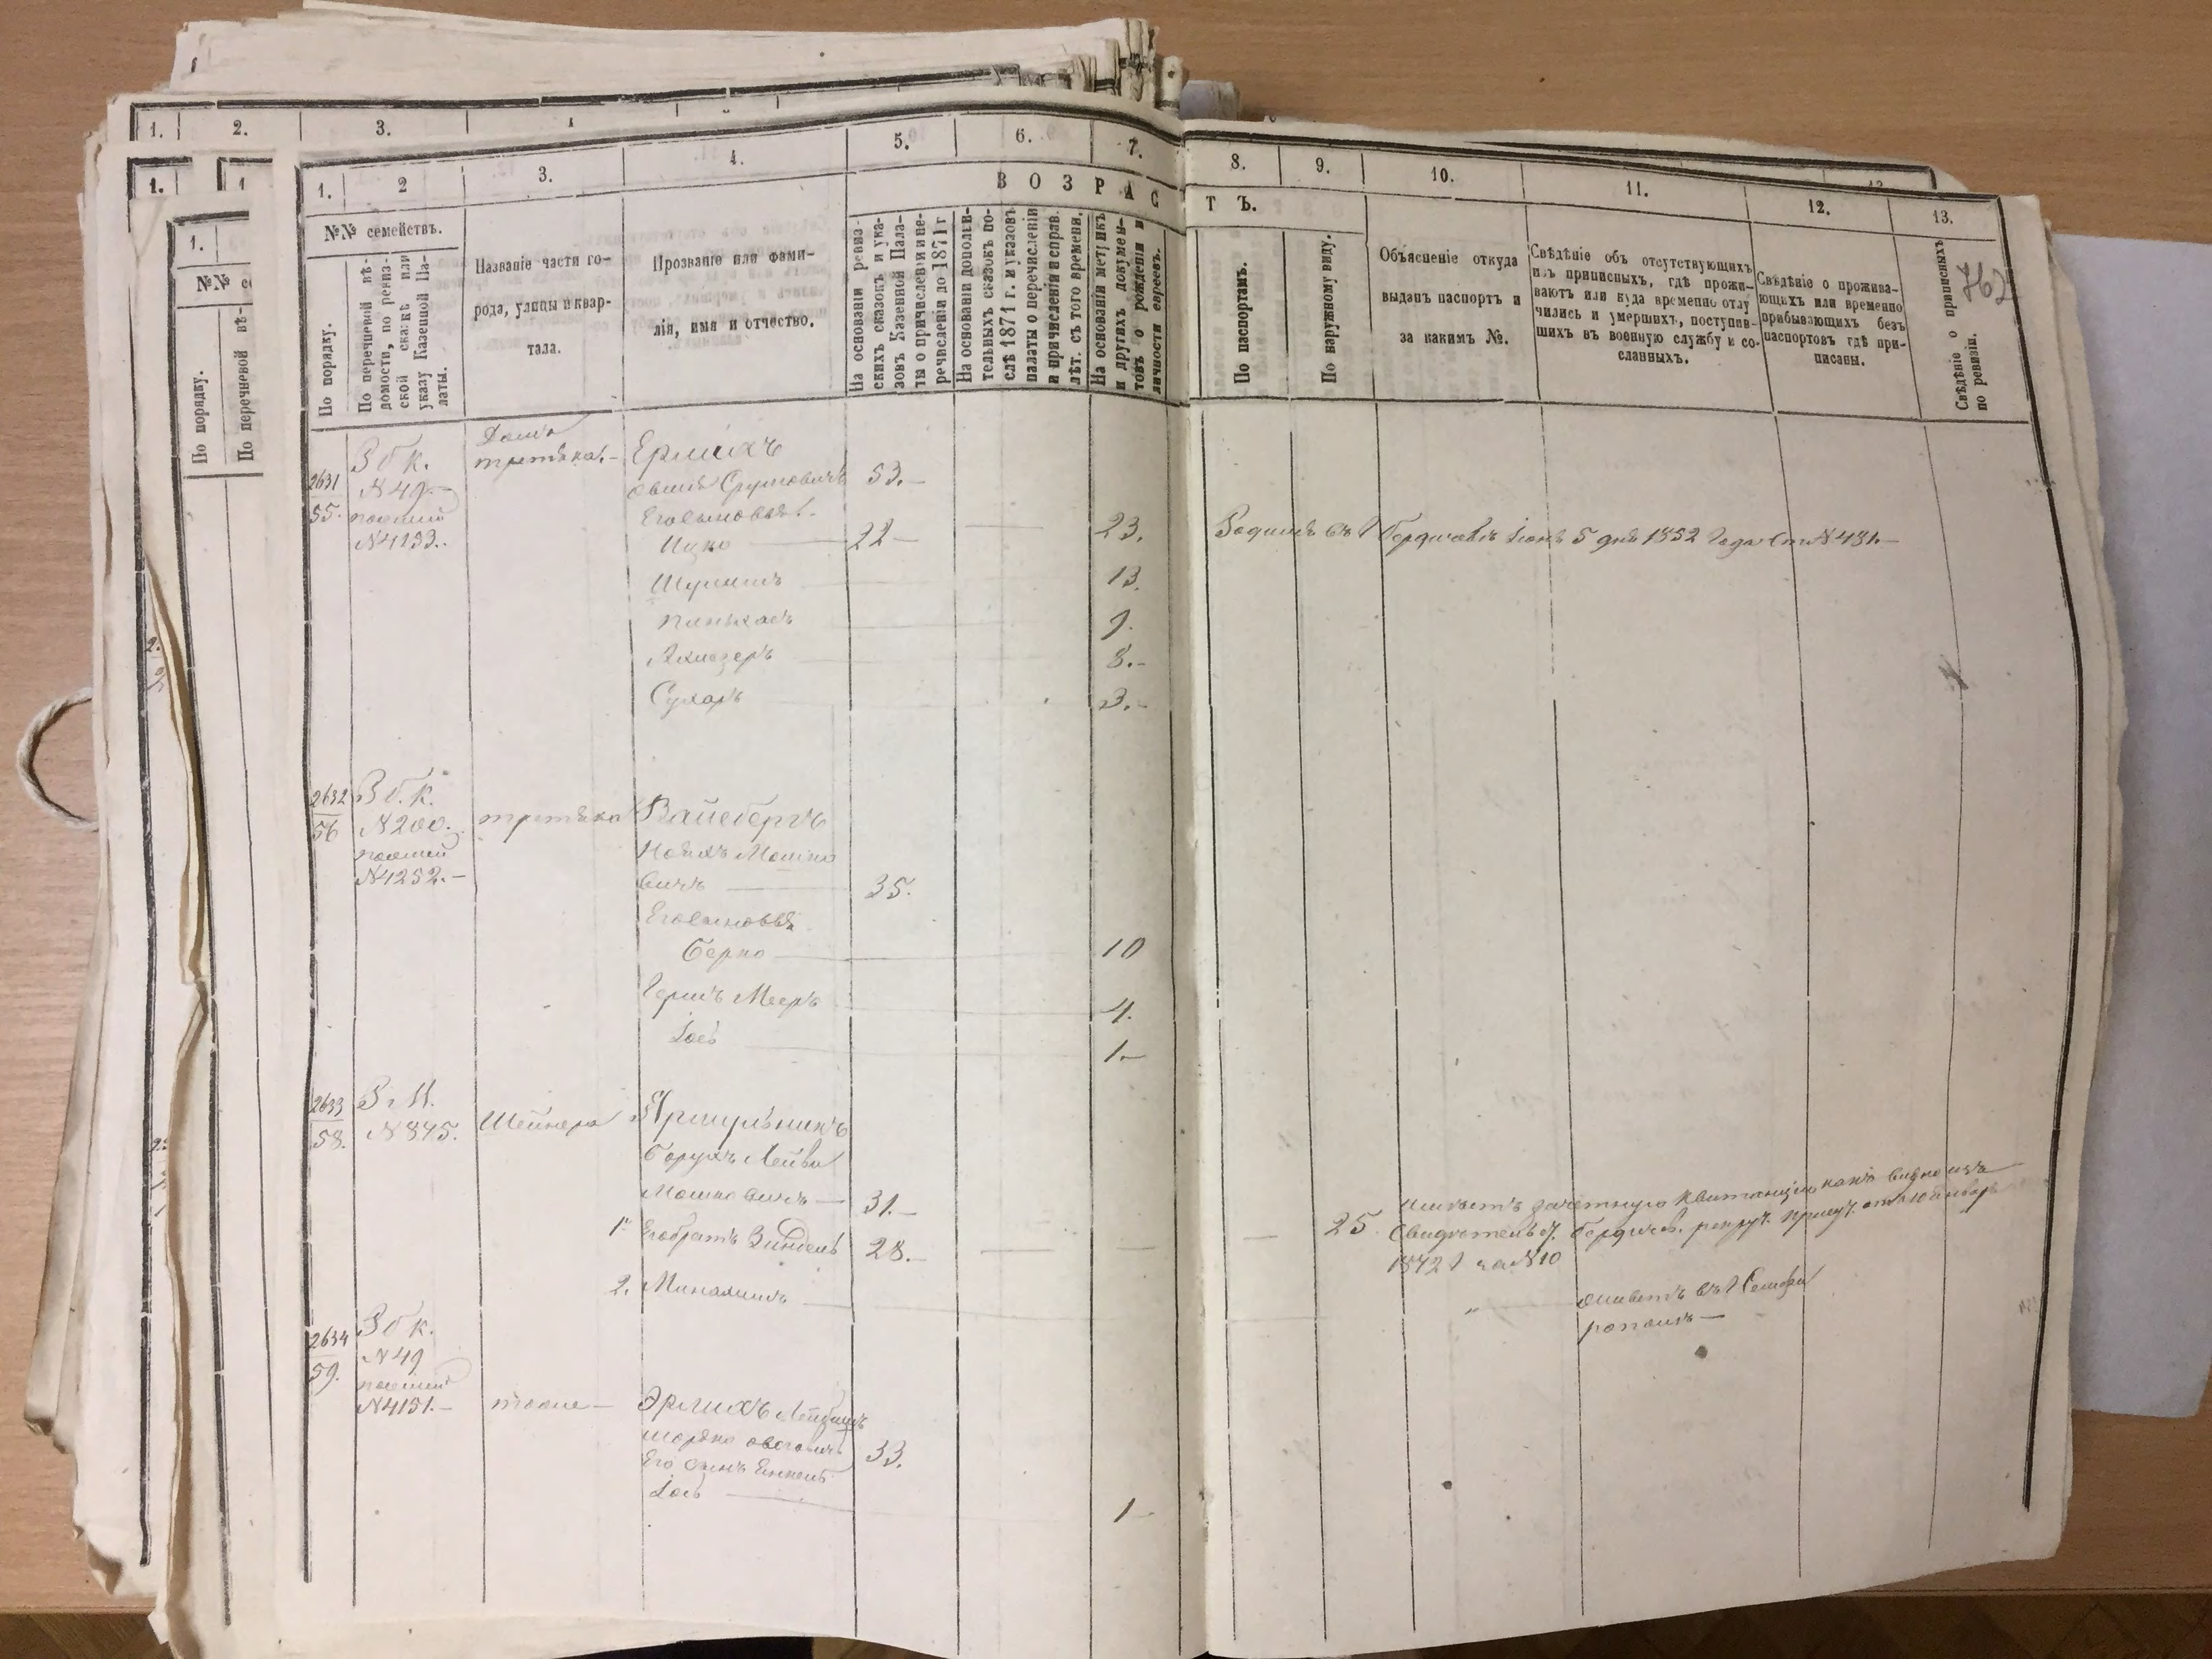 1.
2.
3.
1.
1.
№№
По порядку.
По перечневой вѣ-
1.
2
3.
4.
5.
6.
7.
8.
9.
10.
11.
12.
13.
ВОЗРАС
ТЪ.
№№ семействъ.
По порядку.
По перечневой вѣ-
домости, по ревиз-
ской сказкѣ или
указу Казенной Па-
латы.
Названіе части го-
рода, улицы и квар-
тала.
Прозваніе или фами-
лія, имя и отчество.
На основаніи ревиз-
скихъ сказокъ и ука-
зовъ Казенной Пала-
ты о причисленіи и пе-
речисленіи до 1871 г
На основаніи дополни-
тельныхъ сказокъ по-
слѣ 1871 г. и указовъ
палаты о перечисленіи
и причисленіи и справ.
лѣт. съ того времени.
На основаніи метрикъ
и другихъ докумен-
товъ о рожденіи и
личности евреевъ.
По паспортамъ.
По наружному виду.
Объясненіе откуда
выданъ паспортъ и
за какимъ №.
Свѣдѣніе об отсутствующихъ
изъ приписныхъ, гдѣ прожи-
ваютъ или куда временно отлу
чились и умершихъ, поступив-
шихъ въ военную службу и со-
сланныхъ.
Свѣдѣніе о прожива-
ющихъ или временно
прибывающихъ безъ
паспортовъ гдѣ при-
писаны.
Свѣдѣніе о приписныхъ
по ревизіи.
762
2631
55.
З б к.
N 49.—
N4193..
Домъ
Ерлихъ
53.—
Его сыновья.
Ицко 22— 23.
Родился въ г Бердичевѣ Іюня 5 дня 1852 года Ст N 431.—
Шулимъ 13.
Пинькасъ 9.
Ахиезеръ 8.—
Сухаръ 3.—
2632
56
З б. к.
N 200.
N4252.—
Вайсбергъ
Мошко
вичъ 35.
Его сыновья
Берко 10
Гершъ Мееръ 4.
Іось 1.—
2633
58.
N 845.
Шейнера
Борухъ Лейба
Мошковичъ — 31.—
1й Его братъ Зиндель 28.— 25
Имѣетъ зачетную квитанцію какъ видно изъ
Свидѣтельст. Бердичев. рекрут. присут. отъ 10 января
1872 г за N 10
2.
живетъ въ г Симфе
рополѣ—
2634
59.
З б к.
N 49
N4151.—
тоже—
Эрлихъ
33.
Его сынъ Енкель
Іось 1—